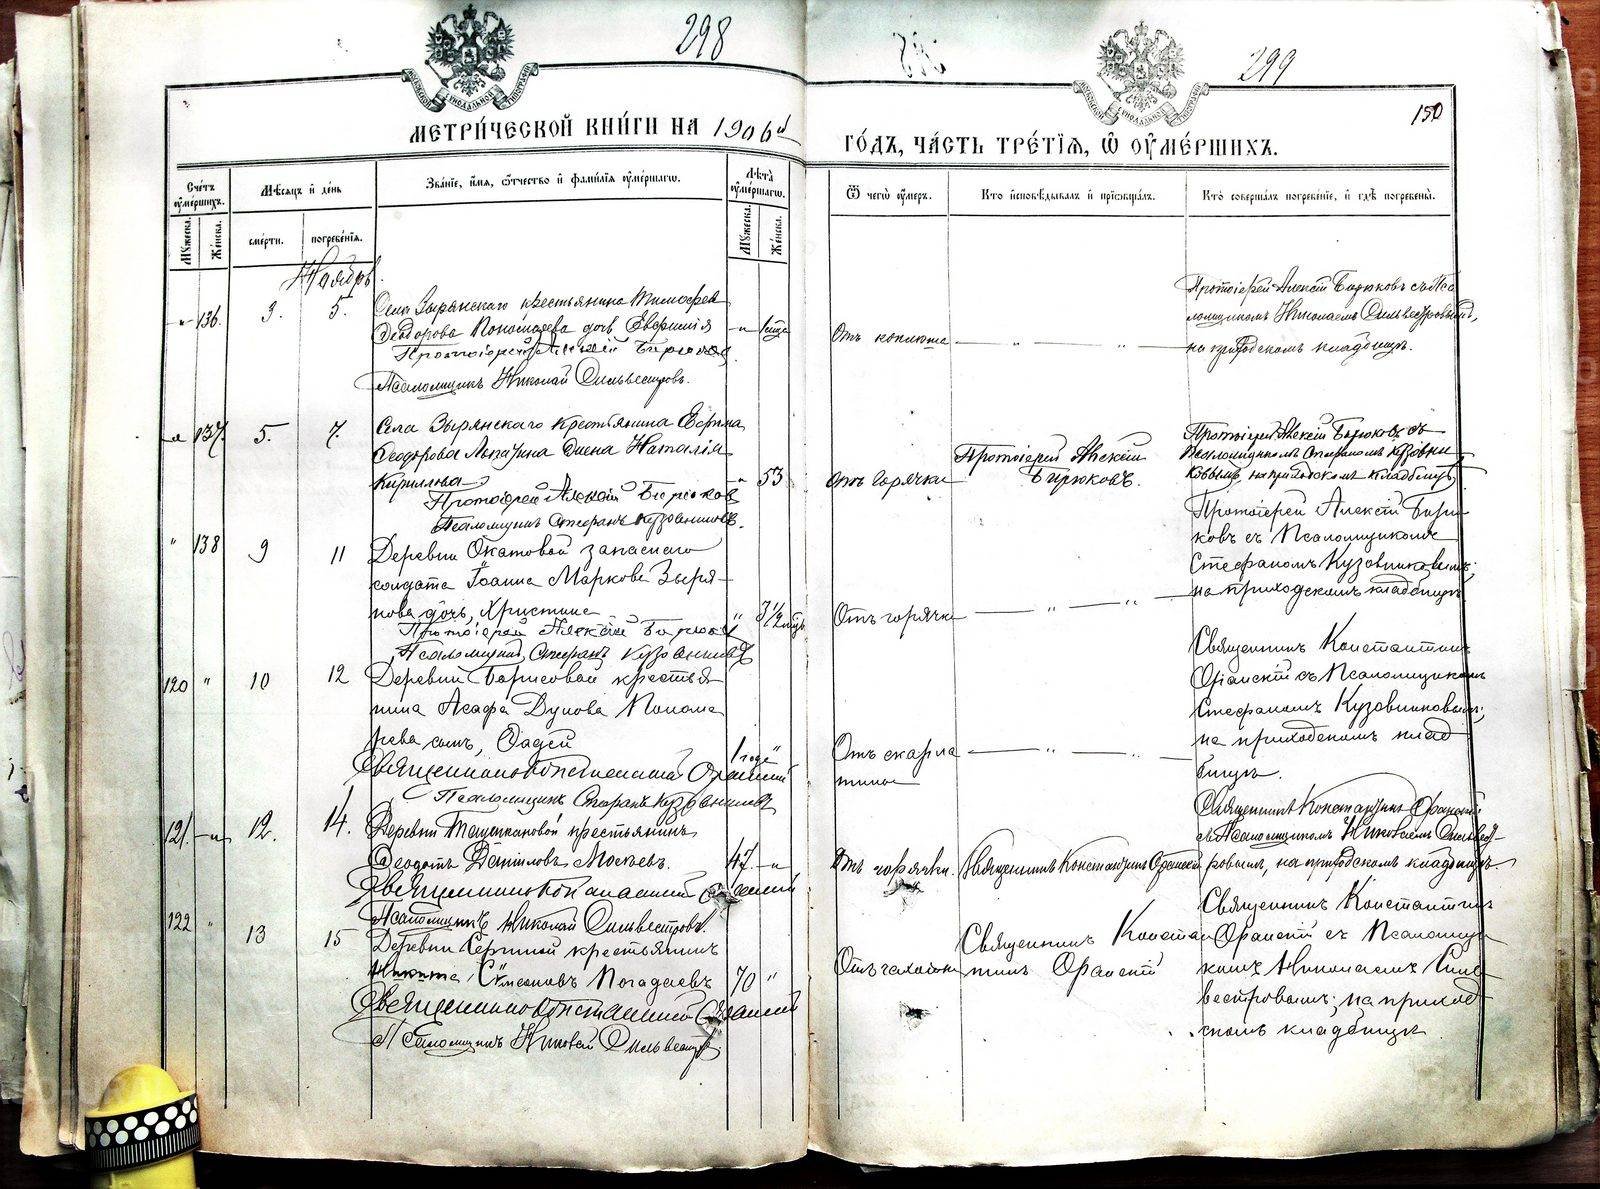 298
299
150
МЕТРИ́ЧЕСКОЙ КНИ́ГИ НА 1906й
ГО́ДЪ, ЧА́СТЬ ТРЕ́ТІЯ, Ѿ ОУ҆МЕ́РШИХЪ.
Сче́тъ оу҆ме́ршихъ.
Мѣ́сяцъ и҆ де́нь
Зва́ніе, и҆́мя, ѻ҆́тчество и҆ фами́лія оу҆ме́ршагѡ.
Лѣ́та оу҆ме́ршагѡ.
Ѿ чегѡ̀ оу҆́меръ.
Кто̀ и҆сповѣ́дывалъ и҆ прїѡбща́лъ.
Кто̀ соверша́лъ погребе́ніе, и҆ гдѣ̀ погребены̀.
Мꙋ́жеска.
Же́нска.
сме́рти.
погребе́нія.
Мꙋ́жеска.
Же́нска.
Ноябрь.
" 136. 3. 5. Села Зырянскаго крестьянина Тимофея
Ѳеодорова Пономарева дочь Евфимія
Протоіерей Алексій Бирюковъ
Псаломщикъ Николай Сильвестровъ.
Отъ коклюша
Протоіерей Алексій Бирюковъ съ Пса
ломщикомъ Николаемъ Сильвестровымъ,
на приходскомъ кладбищѣ.
" 137. 5. 7. Села Зырянскаго крестьянина
Ѳеодорова жена Наталія
Кириллова " 53
Протоіерей Алексій Бирюковъ
Псаломщикъ Стефанъ Кузовниковъ.
Отъ горячки
Протоіерей Алексій
Бирюковъ.
Протоіерей Алексій Бирюковъ съ
Псаломщикомъ Стефаномъ Кузовни
ковымъ, на приходскомъ кладбищѣ
" 138 9 11 Деревни Окатовой запаснаго
солдата Іоанна Маркова Зыря-
нова дочь, Христина " 3 1/2 мѣц.
Протоіерей Алексій Бирюковъ
Псаломщикъ Стефанъ Кузовниковъ
Отъ горячки
Протоіерей Алексій Бирю
ковъ съ Псаломщикомъ
Стефаномъ Кузовниковымъ;
на приходскомъ кладбищѣ
120 " 10 12 Деревни Борисовой крестья
нина Асафа Пономa
рева сынъ, Фадей 1 годъ "
Священникъ Константинъ Оранскій
Псаломщикъ Стефанъ Кузовниковъ
Отъ скарла
тины
Священникъ Константинъ
Оранскій съ Псаломщикомъ
Стефаномъ Кузовниковымъ;
на приходскомъ клад
бищѣ.
121. " 12. 14. Деревни крестьянинъ
Ѳеодотъ Даніиловъ 47. "
Священникъ Константинъ Оранскій
Псаломщикъ Николай Сильвестровъ.
Отъ горячки.
Священникъ Константинъ Оранскій
Священникъ Константинъ Оранскій
съ Псаломщикомъ Николаемъ Сильвест-
ровымъ, на приходскомъ кладбищѣ.
122 " 13 15 Деревни крестьянинъ
Никита Сѵмеоновъ Погадаевъ 70 "
Священникъ Константинъ Оранскій
Псаломщикъ Николай Сильвестровъ.
Отъ чахотки
Священникъ Констан
тинъ Оранскій
Священникъ Константинъ
Оранскій съ Псаломщи
комъ Николаемъ Силь
вестровымъ; на приход
скомъ кладбищѣ